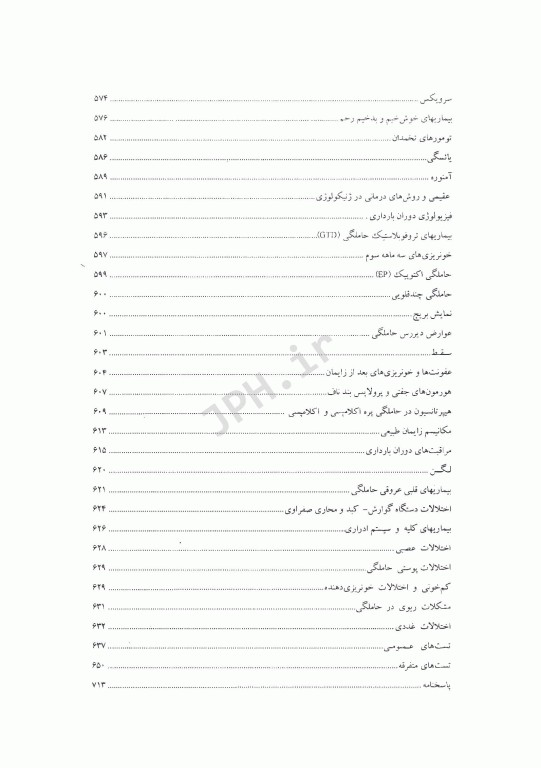 سرویکس ۵۷۴
بیماریهای خوش‌خیم و بدخیم رحم ۵۷۶
تومورهای تخمدان ۵۸۲
یائسگی ۵۸۶
آمنوره ۵۸۹
عقیمی و روش‌های درمانی در ژنیکولوژی ۵۹۱
فیزیولوژی دوران بارداری ۵۹۳
بیماریهای تروفوبلاستیک حاملگی (GTD) ۵۹۶
خونریزی‌های سه ماهه سوم ۵۹۷
حاملگی اکتوپیک (EP) ۵۹۹
حاملگی چندقلویی ۶۰۰
نمایش بریچ ۶۰۰
عوارض دیررس حاملگی ۶۰۱
سقط ۶۰۳
عفونت‌ها و خونریزی‌های بعد از زایمان ۶۰۴
هورمون‌های جفتی و پرولاپس بند ناف ۶۰۷
هیپرتانسیون در حاملگی پره اکلامپسی و اکلامپسی ۶۰۹
مکانیسم زایمان طبیعی ۶۱۳
مراقبت‌های دوران بارداری ۶۱۵
لگن ۶۲۰
بیماریهای قلبی عروقی حاملگی ۶۲۱
اختلالات دستگاه گوارش- کبد و مجاری صفراوی ۶۲۴
بیماریهای کلیه و سیستم ادراری ۶۲۶
اختلالات عصبی ۶۲۸
اختلالات پوستی حاملگی ۶۲۹
کم‌خونی و اختلالات خونریزی‌دهنده ۶۲۹
مشکلات ریوی در حاملگی ۶۳۱
اختلالات غددی ۶۳۲
تست‌های عمومی ۶۳۷
تست‌های متفرقه ۶۵۰
پاسخنامه ۷۱۳
JPH.ir